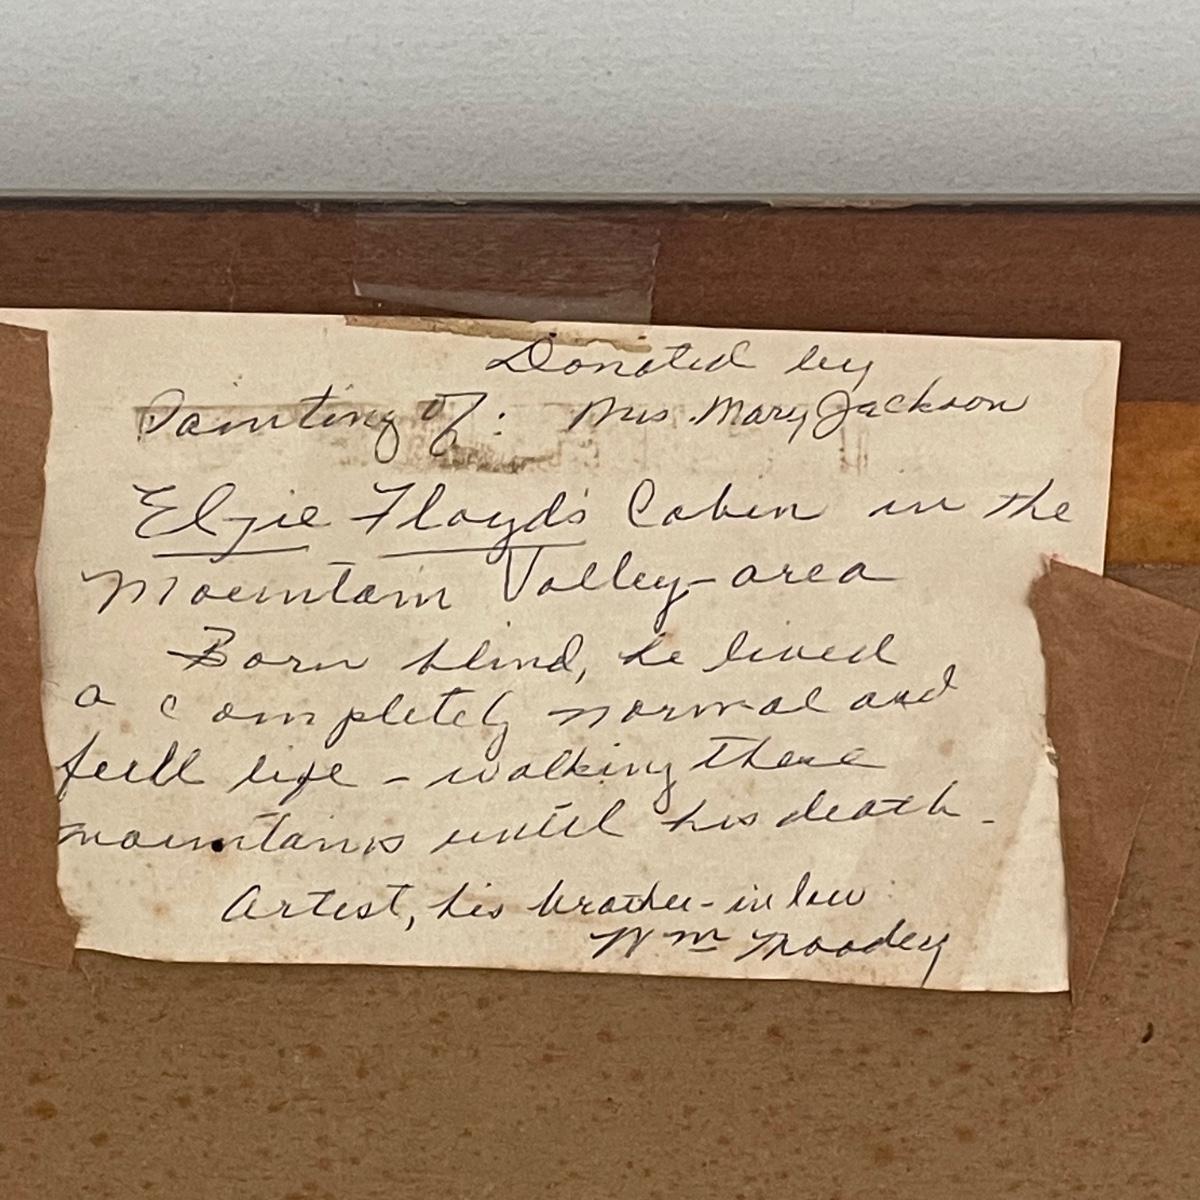 Donated by
Painting of: Mrs. Mary Jackson
Elzie Floyd's Cabin in the
Mountain Valley-area
Born blind, he lived
a completely normal and
full life - walking these
mountains until his death.
Artist, his brother-in law
Wm Moodey